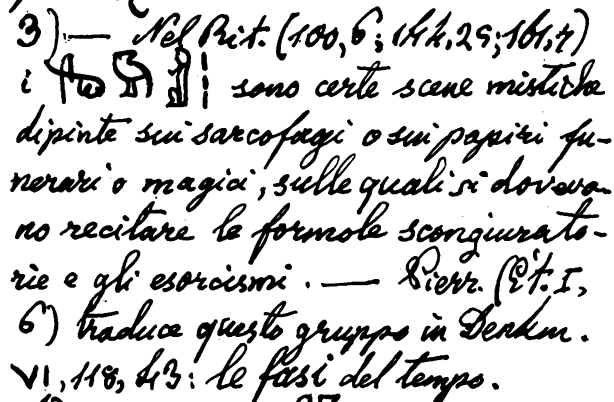 3) — Nel Rit. (100,6; 144,29; 161,7)
i sono certe scene mistiche
dipinte sui sarcofagi o sui papiri fu-
nerari o magici, sulle quali si doveva-
no recitare le formole scongiurato-
rie e gli esorcismi. — Pierr. (Ét. I,
6) traduce questo gruppo in Denkm.
VI, 118, 43: le fasi del tempo.